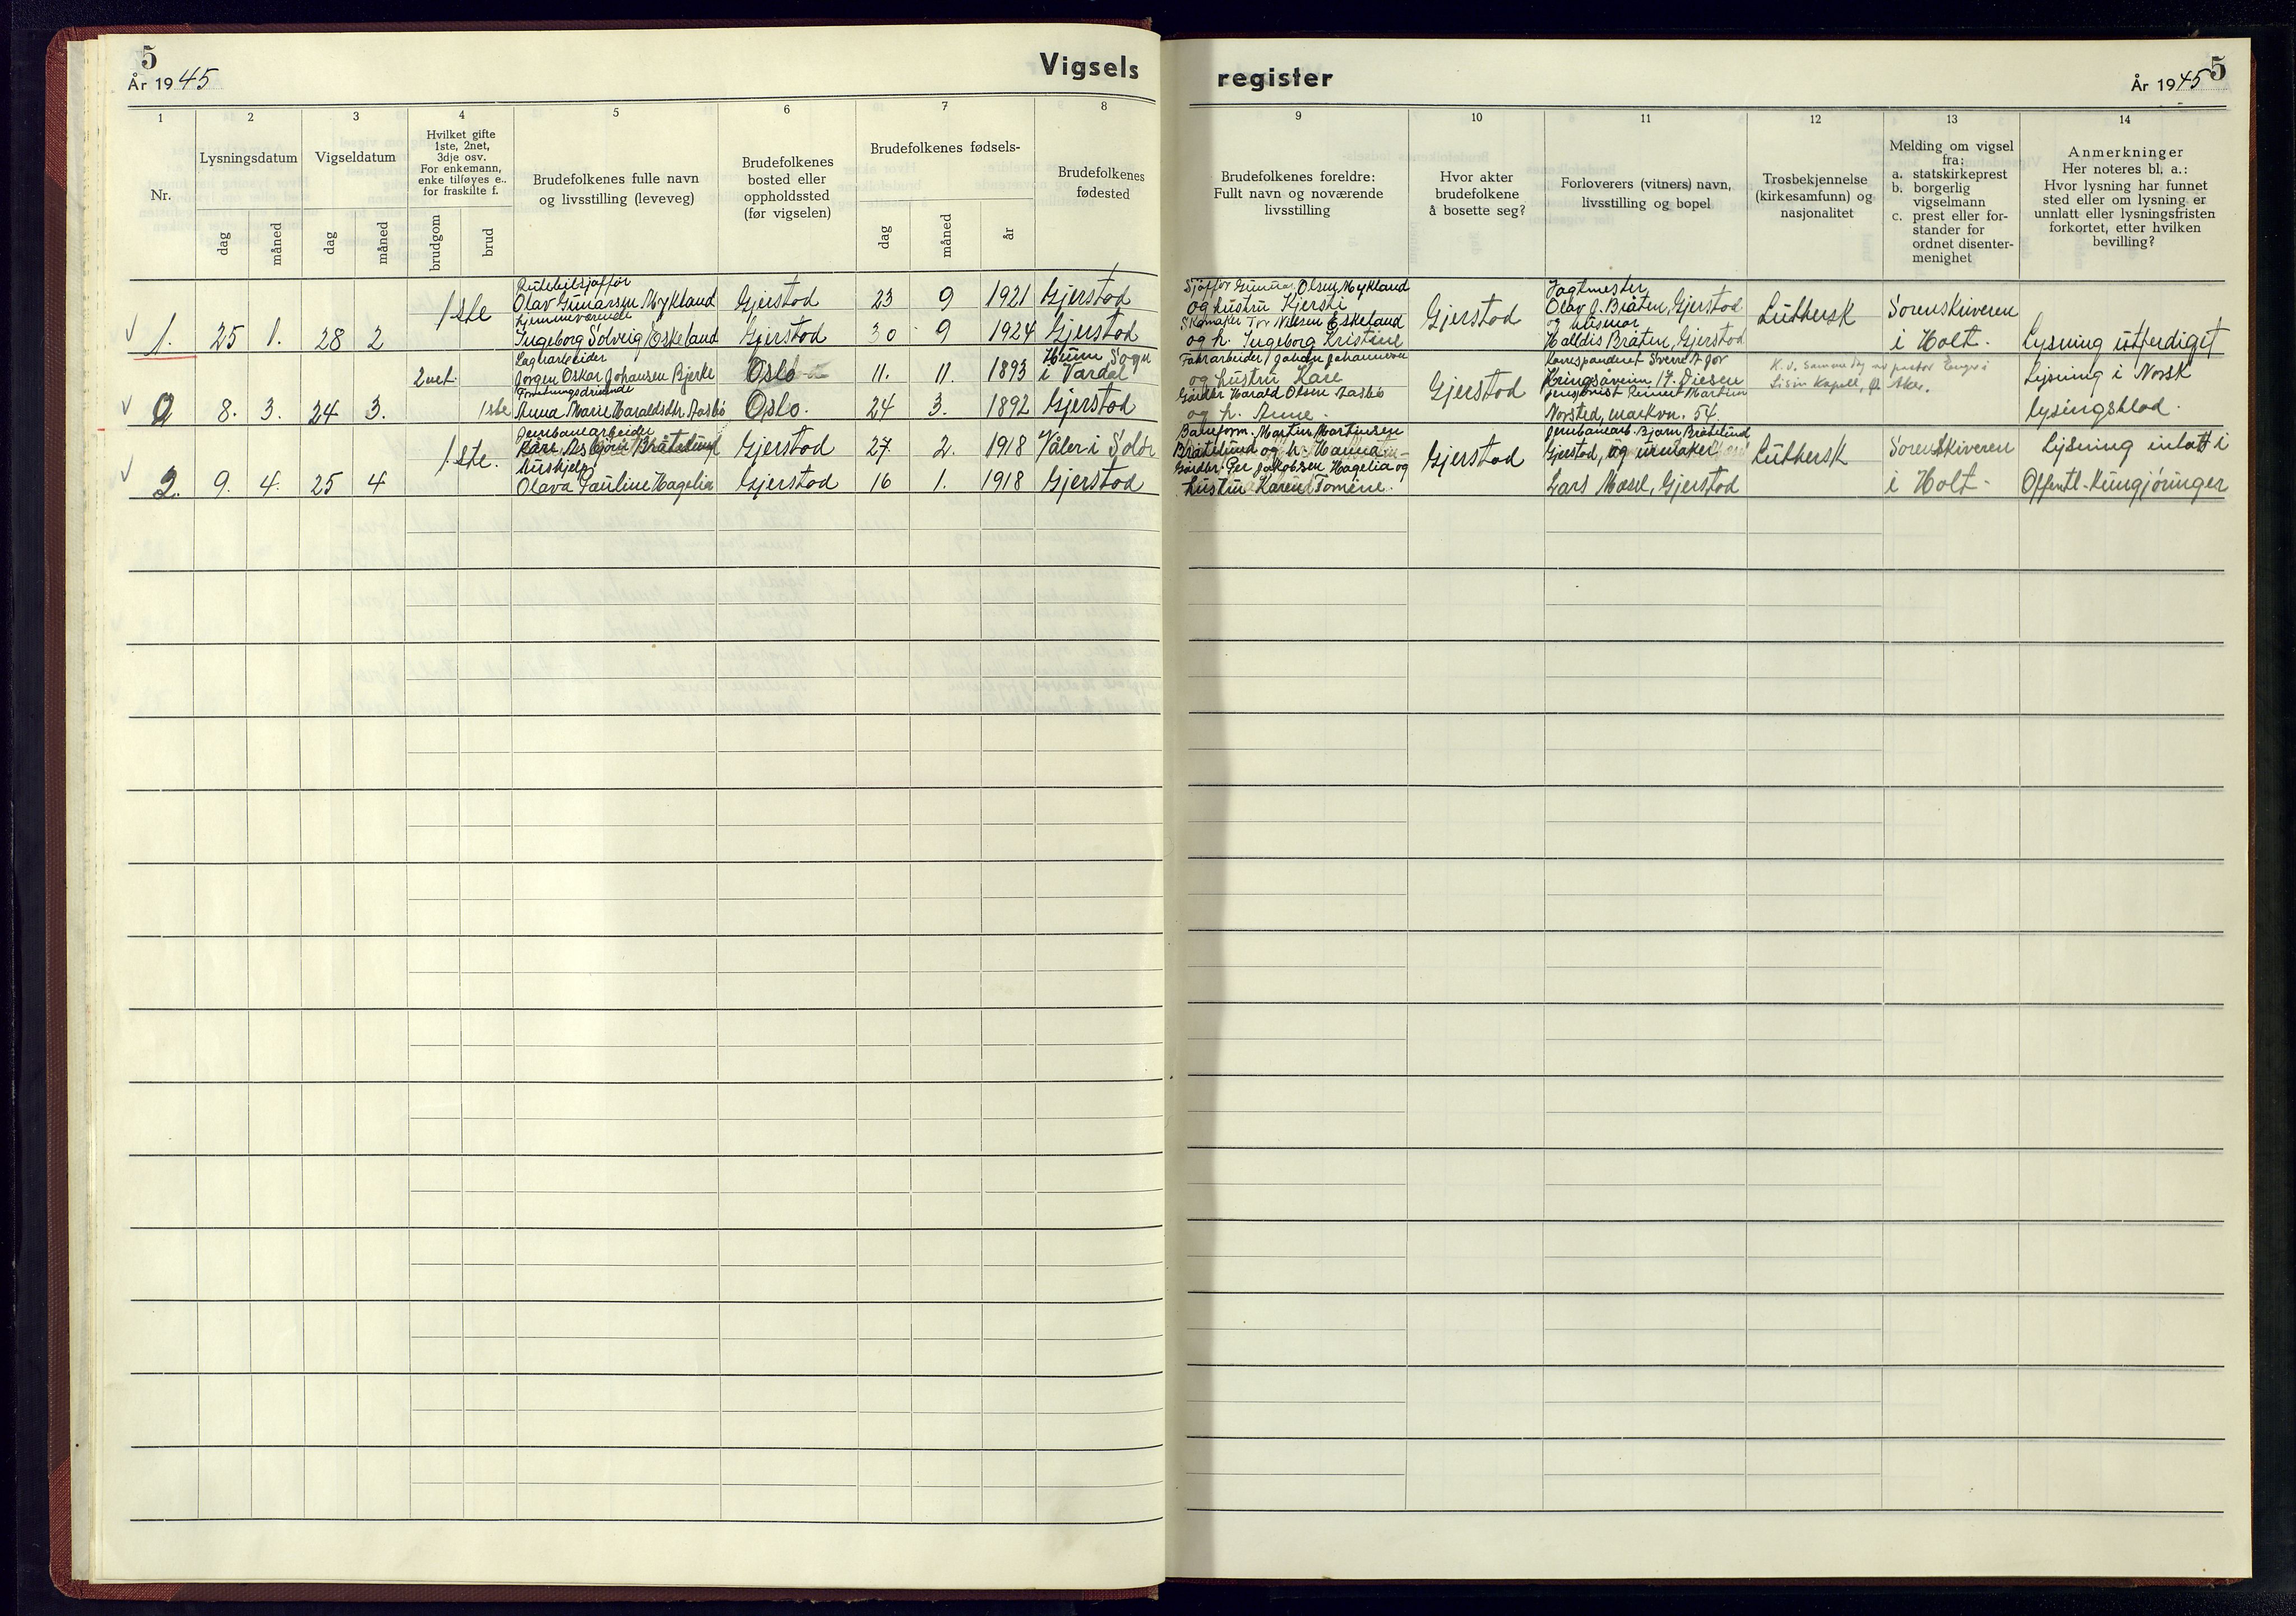 5
År 1945
Vigsels
register
5
År 1945
1
2
3
4
5
6
7
8
9
10
11
12
13
14
Nr.
Lysningsdatum
dag
måned
Vigseldatum
dag
måned
Hvilket gifte
1ste, 2net,
3dje osv.
For enkemann,
enke tilføyes e..
for fraskilte f.
brudgom
brud
Brudefolkenes fulle navn
og livsstilling (leveveg)
Brudefolkenes
bosted eller
oppholdssted
(før vigselen)
Brudefolkenes fødsels-
dag
måned
år
Brudefolkenes
fødested
Brudefolkenes foreldre:
Fullt navn og noværende
livsstilling
Hvor akter
brudefolkene
å bosette seg?
Forloverers (vitners) navn,
livsstilling og bopel
Trosbekjennelse
(kirkesamfunn) og
nasjonalitet
Melding om vigsel
fra:
a. statskirkeprest
b. borgerlig
vigselmann
c. prest eller for-
stander for
ordnet disenter-
menighet
Anmerkninger
Her noteres bl. a.:
Hvor lysning har funnet
sted eller om lysning er
unnlatt eller lysningsfristen
forkortet, etter hvilken
bevilling?
1. 25 1. 28 2
1ste
Rutebilsjåffør
Olav Gunarsen Mykland Gjerstad 23 9 1921 Gjerstad
hjemmeværende
Ingeborg Solveig Eskeland Gjerstad 30 9 1924 Gjerstad
Sjåffør Gunnar Olsen Mykland
og hustru Kjersti
Skomaker Tor Nilsen Eskeland
og h. Ingeborg Kristine
Gjerstad
Jagtmester
Olav J. Bråten, Gjerstad
og husmor
Halldis Bråten, Gjerstad
Luthersk
Sorenskriveren
i Holt.
Lysning utferdiget
0 8. 3. 24 3.
2net.
Lagerarbeider
Jørgen Oskar Johansen Bjerke Oslo 11. 11. 1893 Hunn Sogn
i Vardal
1ste
Forretningsdrivende
Anna Marie Haraldsdtr. Aasbø Oslo. 24 3. 1892 Gjerstad
Fabrarbeider Johan Johannesen
og hustru Kare
Gårdbr Harald Olsen Aasbø
og h. Anne.
Gjerstad
Korrespondent Sverre
17. Diesen
Martin
Norsted, markvn. 54.
K. v. samme dag av pastor
Kapell, Ø. Aker.
Lysning i Norsk
lysingsblad.
2. 9. 4. 25 4
1ste.
Jernbanearbeider
Kåre Asbjørn Bråtelund Gjerstad 27. 2. 1918 Våler i Solør
hushjelp
Olava Pauline Hagelia Gjerstad 16 1. 1918 Gjerstad
Baneform. Martin Martinsen
Bråtelund og h. Hanna
Gårdbr. Per Jakobsen Hagelia og
hustru Karen Tomine.
Gjerstad
Jernbanearb. Bjarn Bråtelund
Gjerstad, og urmaker
Lars Masel, Gjerstad
Luthersk
Sorenskriveren
i Holt.
Lysning inlatt i
Offentl. Kungjøringer